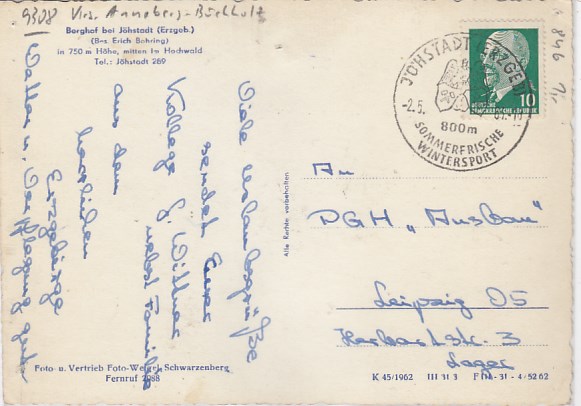 9308 Krs. Annaberg-Buchholz
Berghof bei Jöhstadt (Erzgeb.)
(Bes. Erich Behring)
in 750 m Höhe, mitten im Hochwald
Tel.: Jöhstadt 269
Viele Urlaubsgrüße
sendet Euer
Kollege G. Wittner
nebst Familie
aus dem
herrlichen
Erzgebirge
Wetter u. Verpflegung gut
Alle Rechte vorbehalten
JÖHSTADT ERZGEB.
-2.5.
800m
SOMMERFRISCHE
WINTERSPORT
10
DEUTSCHE DEMOKRATISCHE REPUBLIK
846
An
PGH „Ausbau"
Leipzig O5
Herbartstr. 3
Lager
Foto u. Vertrieb Foto-Weigel Schwarzenberg
Fernruf 2988
K 45/1962 III 31 3 F 114 - 31 - 4/52 62